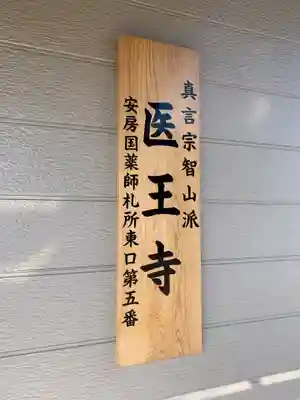 真言宗智山派
医王寺
安房国薬師札所東口第五番